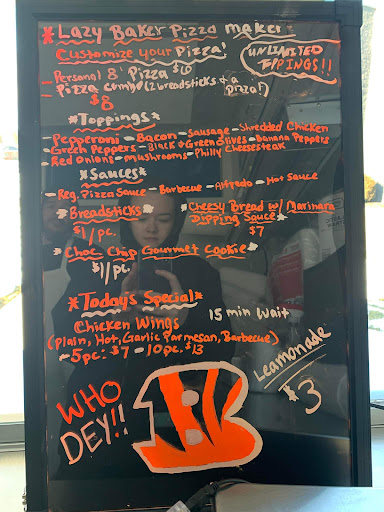 *Lazy Baker Pizza maker
Customize your Pizza!
UNLIMITED TOPPINGS!!
- Personal 8" Pizza $6
- Pizza combo (2 breadsticks & a pizza!)
$8
*Toppings*
- Pepperoni - Bacon - Sausage - Shredded Chicken
- Green Peppers - Black & Green Olives - Banana Peppers
- Red Onions - mushrooms - Philly Cheesesteak
*Sauces*
- Reg. Pizza Sauce - Barbecue - Alfredo - Hot Sauce
*Breadsticks*
$1/pc.
*Cheesy Bread w/ Marinara
Dipping Sauce*
$7
*Choc. Chip Gourmet Cookie*
$1/pc.
*Today's Special*
Chicken Wings
15 min Wait
(Plain, Hot, Garlic Parmesan, Barbecue)
~ 5pc: $7 - 10pc. $13
Leamonade
$3
WHO
DEY!!
B